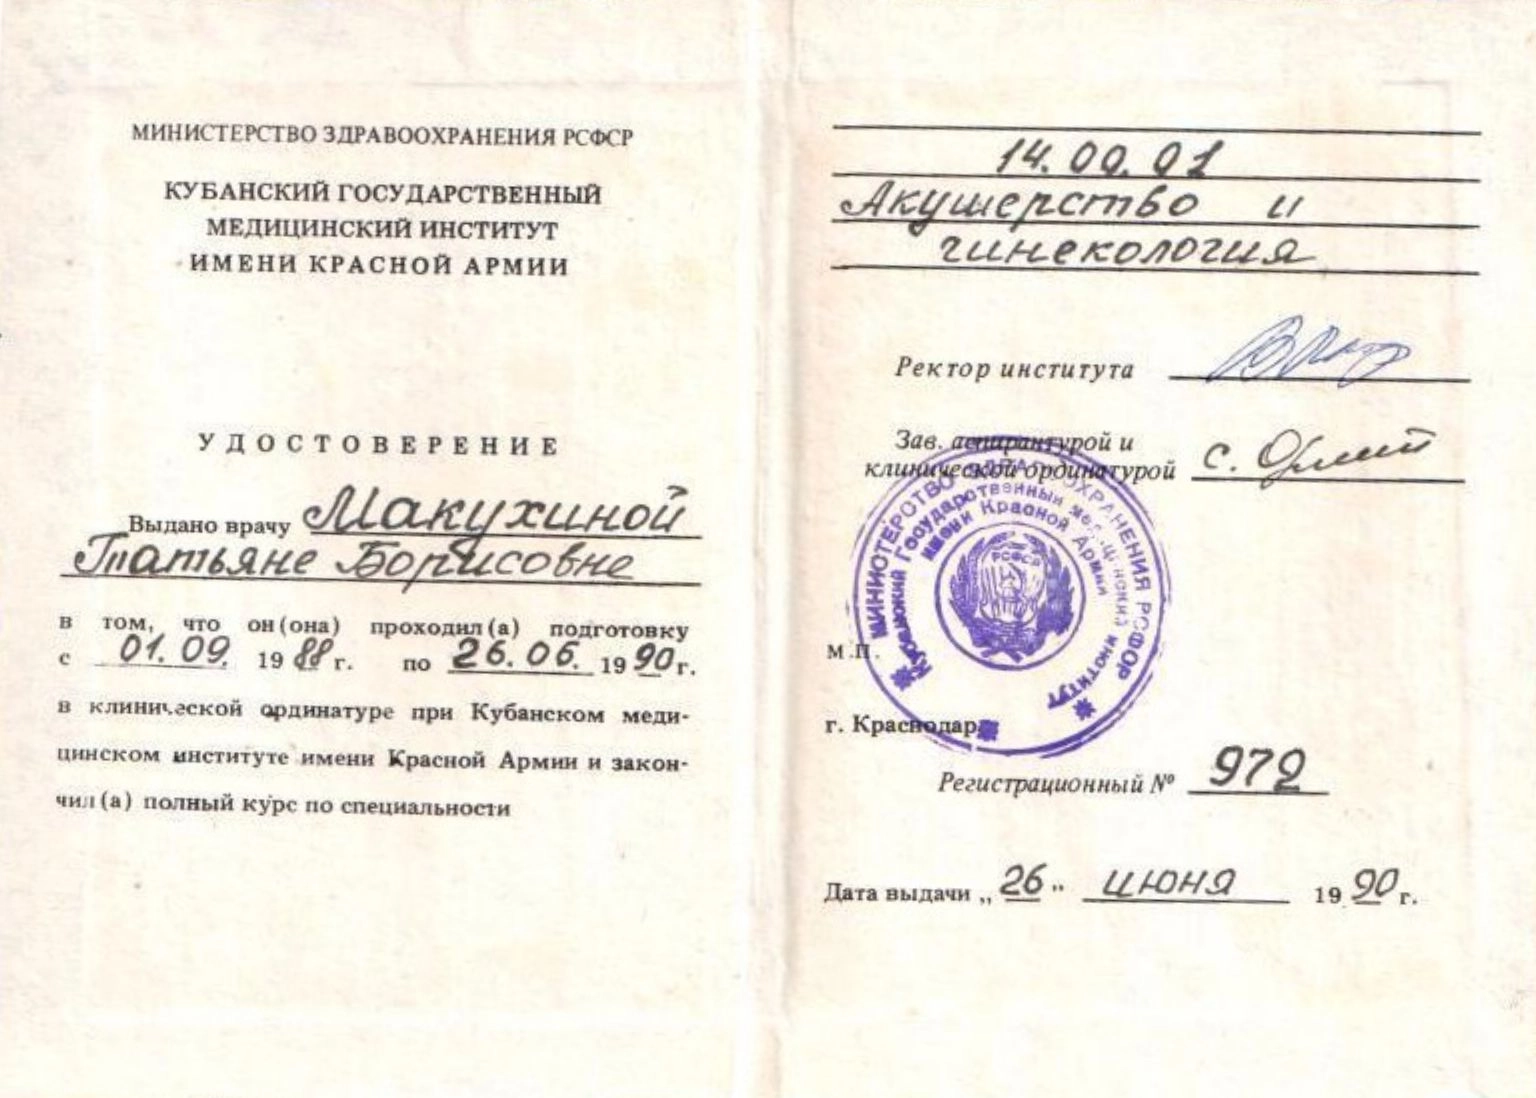 МИНИСТЕРСТВО ЗДРАВООХРАНЕНИЯ РСФСР
КУБАНСКИЙ ГОСУДАРСТВЕННЫЙ
МЕДИЦИНСКИЙ ИНСТИТУТ
ИМЕНИ КРАСНОЙ АРМИИ
УДОСТОВЕРЕНИЕ
Выдано врачу Макухиной
Татьяне Борисовне
в том, что он (она) проходил (а) подготовку
с 01.09. 1988 г. по 26.06. 1990 г.
в клинической ординатуре при Кубанском меди-
цинском институте имени Красной Армии и закон-
чил (а) полный курс по специальности
14.00.01
Акушерство и
гинекология
Ректор института
Зав. аспирантурой и
клинической ординатурой
МИНИСТЕРСТВО ЗДРАВООХРАНЕНИЯ РСФСР
Кубанский Государственный медицинский институт
имени Красной Армии
РСФСР
М.П.
г. Краснодар
Регистрационный № 972
Дата выдачи „ 26 " июня 1990 г.